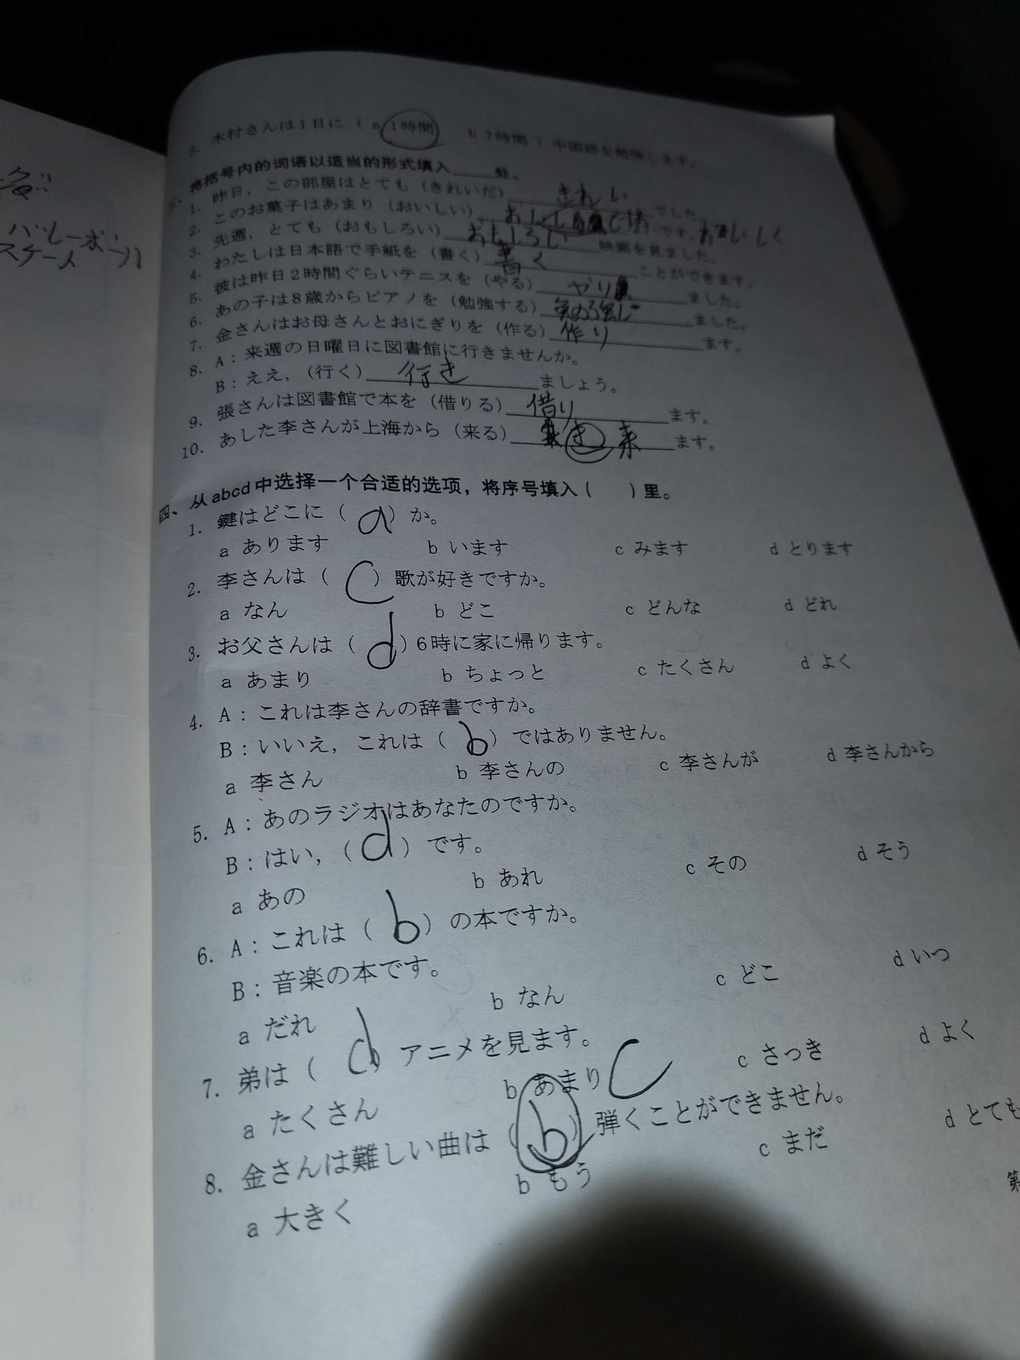 バレーボール
木村さんは1日に（ a 1時間　b 2時間 ）中国語を勉強します。
三、将括号内的词语以适当的形式填入＿＿处。
1. 昨日，この部屋はとても（きれいだ）きれい でした。
2. このお菓子はあまり（おいしい） です。おいしく
3. 先週，とても（おもしろい）おもしろい 映画を見ました。
4. わたしは日本語で手紙を（書く）書く ことができます。
5. 彼は昨日2時間ぐらいテニスを（やる）やり ました。
6. あの子は8歳からピアノを（勉強する） ました。
7. 金さんはお母さんとおにぎりを（作る）作り ます。
8. A：来週の日曜日に図書館に行きませんか。
B：ええ，（行く）行き ましょう。
9. 張さんは図書館で本を（借りる）借り ます。
10. あした李さんが上海から（来る） き 来 ます。
四、从abcd中选择一个合适的选项，将序号填入（　）里。
1. 鍵はどこに（ a ）か。
a あります　b います　c みます　d とります
2. 李さんは（ C ）歌が好きですか。
a なん　b どこ　c どんな　d どれ
3. お父さんは（ d ）6時に家に帰ります。
a あまり　b ちょっと　c たくさん　d よく
4. A：これは李さんの辞書ですか。
B：いいえ，これは（ b ）ではありません。
a 李さん　b 李さんの　c 李さんが　d 李さんから
5. A：あのラジオはあなたのですか。
B：はい，（ d ）です。
a あの　b あれ　c その　d そう
6. A：これは（ b ）の本ですか。
B：音楽の本です。
a だれ　b なん　c どこ　d いつ
7. 弟は（ d アニメを見ます。
a たくさん　b あまり　c さっき　d よく
C
8. 金さんは難しい曲は（ b ）弾くことができません。
a 大きく　b もう　c まだ　d とても
第